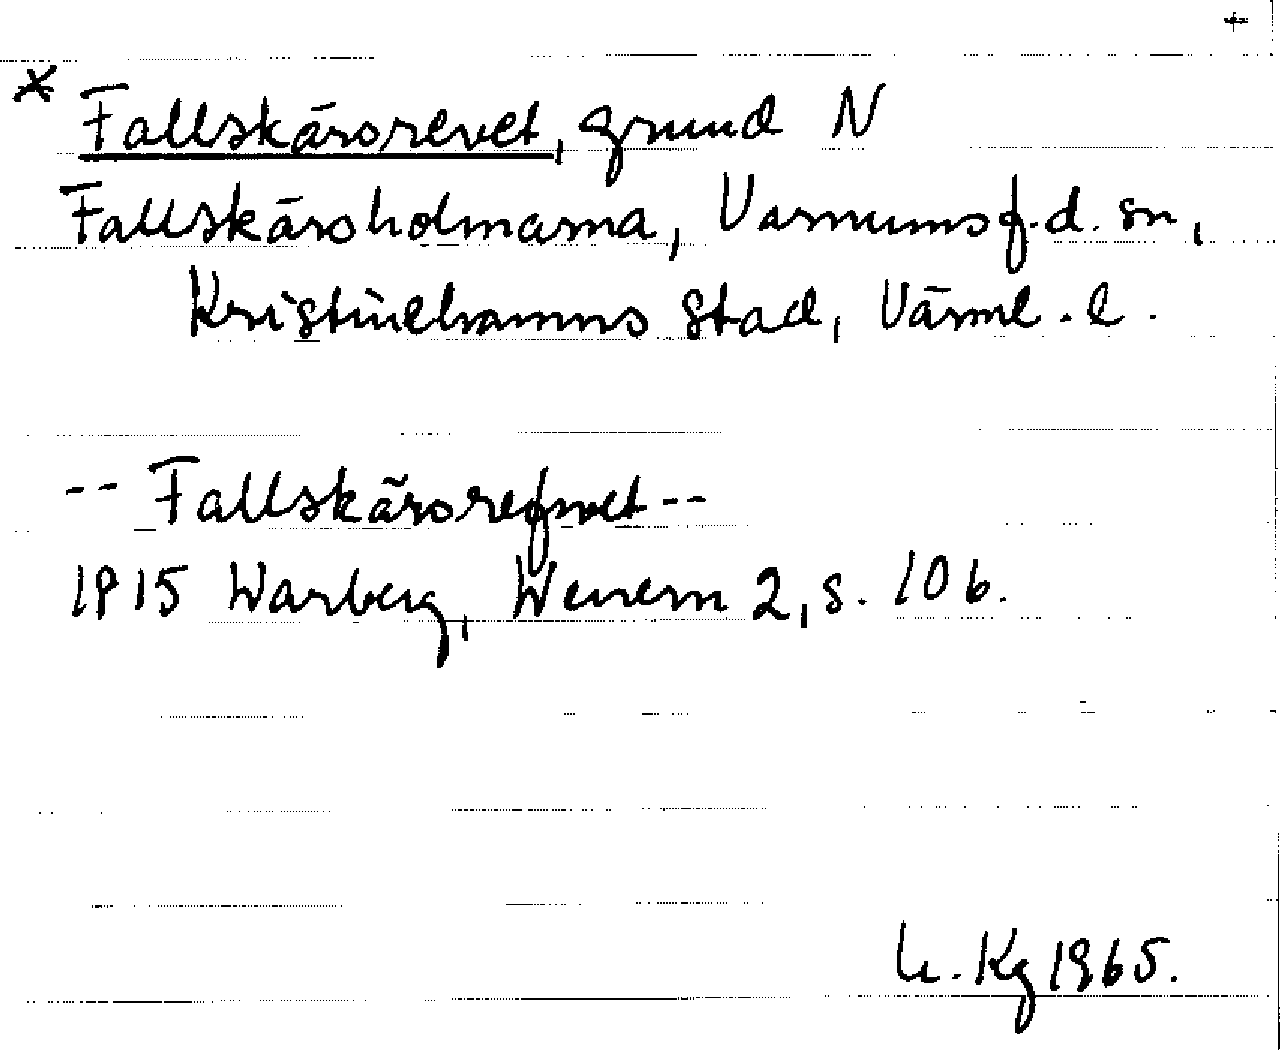 +
* Fallskärsrevet, grund N
Fallskärsholmarna, Varnums f.d. sn,
Kristinehamns stad, Värml. l.
-- Fallskärsrefvet --
1915 Warberg, Wenern 2, s. 106.
Kg 1965.